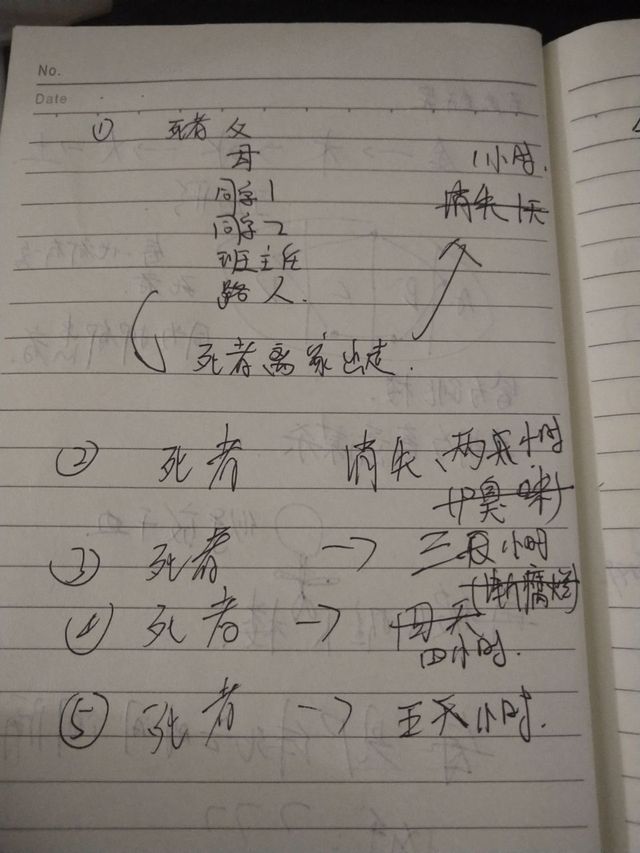 No.
Date
① 死者 父
母 1小时.
同学1 消失1天
同学2
班主任
路人.
死者离家出走.
② 死者 消失、两天小时
(尸臭味)
③ 死者 → 三天小时
腐烂)
④ 死者 → 四天
四小时.
⑤ 死者 → 五天小时.